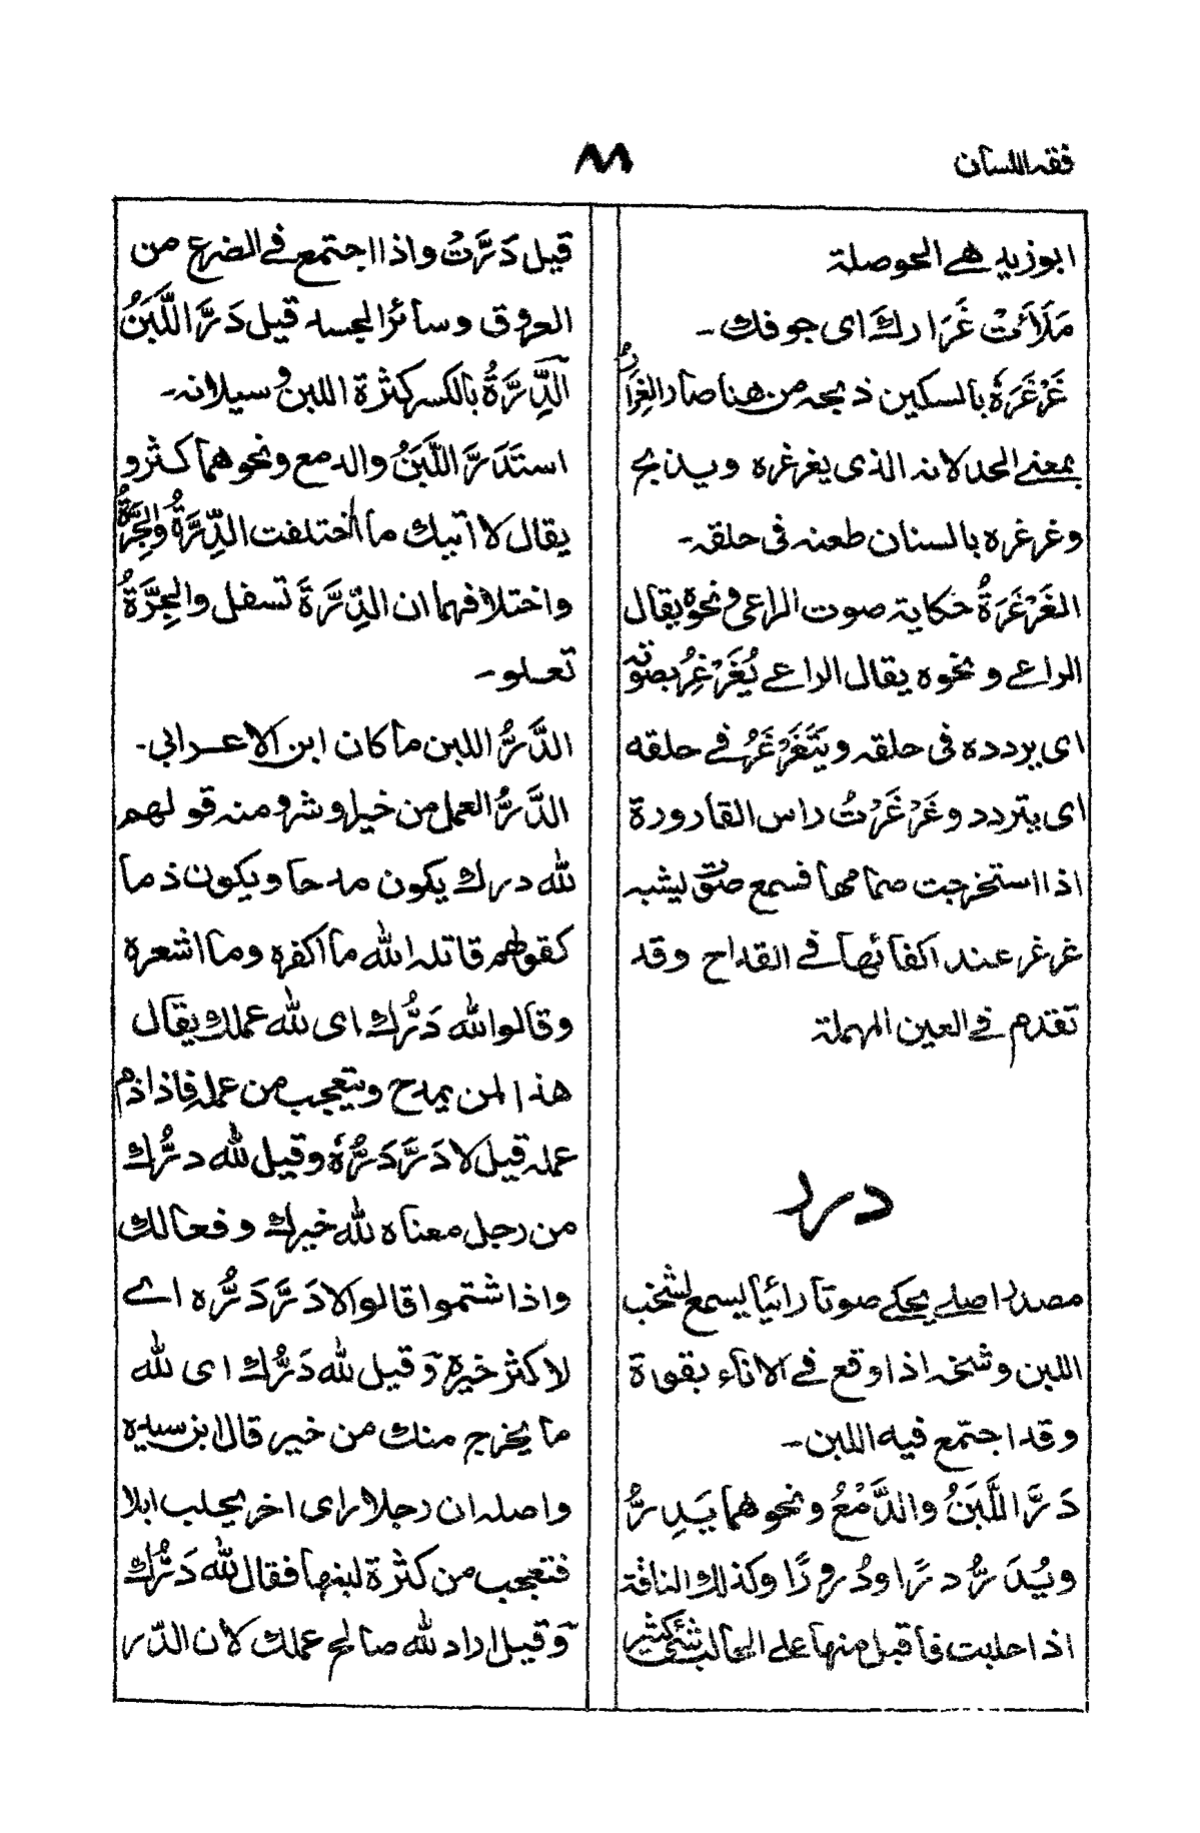 فقه اللسان
٨٨
ابوزيد هي الحوصلة
مَلَأَتْ غَرَارَكَ اى جوفك ـ
غَرْغَرَهٗ بالسكين ذبحه من هنا صار الغِرَارُ
بمعنى الحد لانه الذى يغرغره ويذبح
وغرغره بالسنان طعنه فى حلقه ـ
الغَرْغَرَةُ حكاية صوت الراعى ونحوه يقال
الراعى ونحوه يقال الراعى يُغَرْغِرُ بصوته
اى يردده فى حلقه ويَتَغَرْغَرُ فى حلقه
اى يتردد وغَرْغَرْتُ راس القارورة
اذا استخرجت صمامها فسمع صوت ليشبه
غرغر عند اكفائها فى القداح وقد
تقدم فى العين المهملة
درر
مصدر اصلى يحكى صوتا رائيا يسمع لشخب
اللبن وشخه اذا وقع فى الاناء بقوة
وقد اجتمع فيه اللبن ـ
دَرَّ اللَّبَنُ والدَّمْعُ ونحوهما يَدِرُّ
ويُدَرُّ درًّا ودُرورًا وكذلك الناقة
اذا حلبت فاقبل منها على الحالب شئ كثير
قيل دَرَّتْ واذا اجتمع فى الضرع من
العروق وسائر الجسد قيل دَرَّ اللَّبَنُ
اَلدِّرَّةُ بالكسر كثرة اللبن وسيلانه ـ
استَدَرَّ اللَّبَنُ والدمع ونحوهما كثر و
يقال لا آتيك ما اختلفت الدِّرَّةُ والجِرَّةُ
واختلافهما ان الدِّرَّةَ تسفل والجِرَّةُ
تعلو ـ
الدَّرُّ اللبن ما كان ابن الاعرابى ـ
الدَّرُّ العمل من خير او شر و منه قولهم
لله درك يكون مدحا ويكون ذما
كقولهم قاتله الله ما اكفره وما اشعره
وقالوا لله دَرُّك اى لله عملك يقال
هذا لمن يمدح ويتعجب من عمله فاذا ذم
عمله قيل لا دَرَّ دَرُّهٗ وقيل لله درُّك
من رجل معناه لله خيرك وفعالك
واذا شتموا قالوا لا دَرَّ دَرُّه اى
لا كثر خيره وقيل لله دَرُّك اى لله
ما يخرج منك من خير قال ابن سيده
واصله ان رجلا راى اخر يحلب ابلا
فتعجب من كثرة لبنها فقال لله دَرُّك
وقيل اراد لله صالح عملك لان الدّر